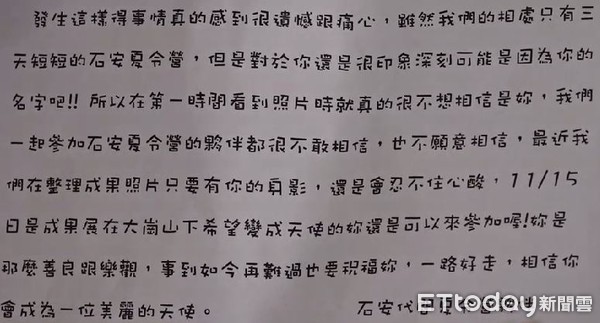 發生這樣得事情真的感到很遺憾跟痛心，雖然我們的相處只有三
天短短的石安夏令營，但是對於你還是很印象深刻可能是因為你的
名字吧!! 所以在第一時間看到照片時就真的很不想相信是妳，我們
一起參加石安夏令營的夥伴都很不敢相信，也不願意相信，最近我
們在整理成果照片只要有你的身影，還是會忍不住心酸，11/15
日是成果展在大崗山下希望變成天使的妳還是可以來參加喔!妳是
那麼善良跟樂觀，事到如今再難過也要祝福妳，一路好走，相信你
會成為一位美麗的天使。 石安代
ETtoday新聞雲